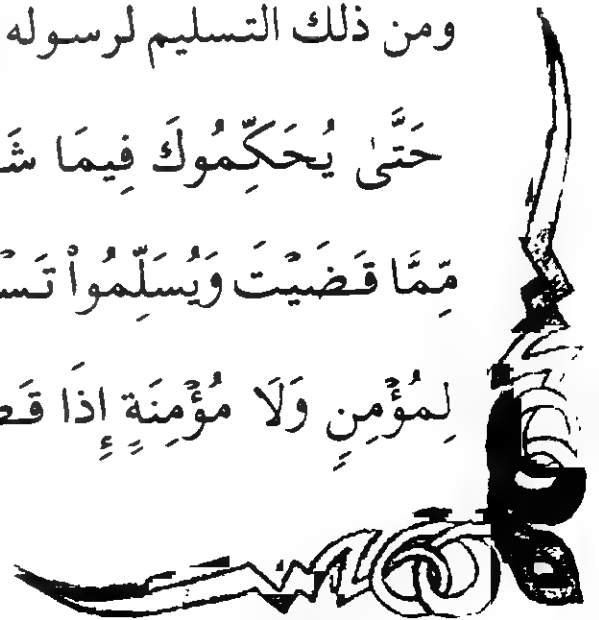 ومن ذلك التسليم لرسوله
حَتَّىٰ يُحَكِّمُوكَ فِيمَا
مِّمَّا قَضَيْتَ وَيُسَلِّمُوا۟
لِمُؤْمِنٍ وَلَا مُؤْمِنَةٍ إِذَا